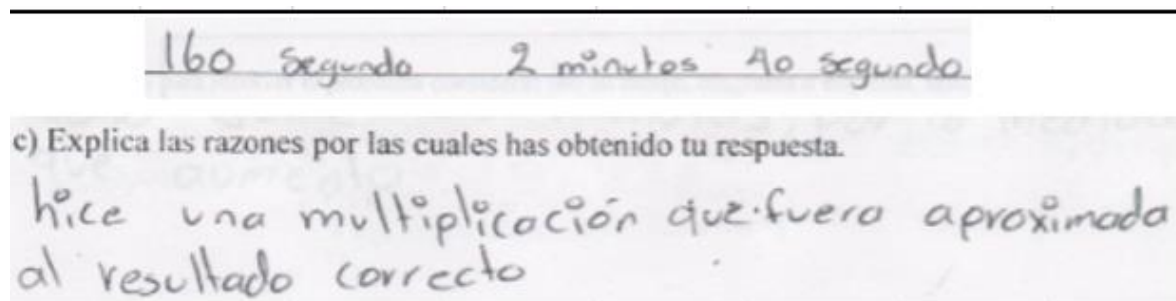 160 segundo 2 minutos 40 segundo
c) Explica las razones por las cuales has obtenido tu respuesta.
hice una multiplicación que fuera aproximada
al resultado correcto